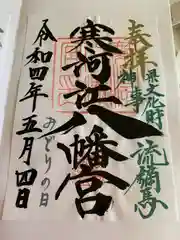 奉拝
県文化財
御神事
流鏑馬
寒河江八幡宮
令和四年五月四日
みどりの日